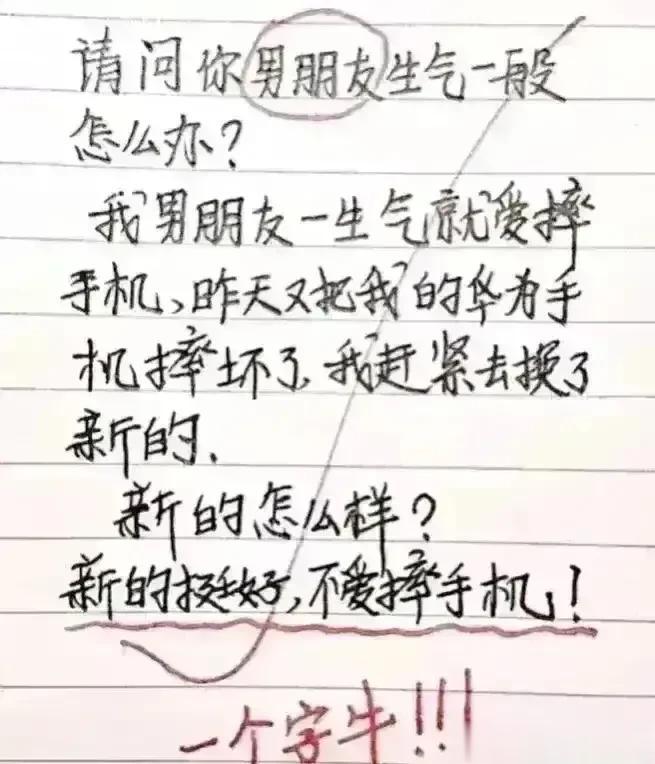 请问你男朋友生气一般
怎么办?
我男朋友一生气就爱摔
手机、昨天又把我的华为手
机摔坏了,我赶紧去换了
新的.
新的怎么样?
新的挺好,不爱摔手机!
一个字牛!!!